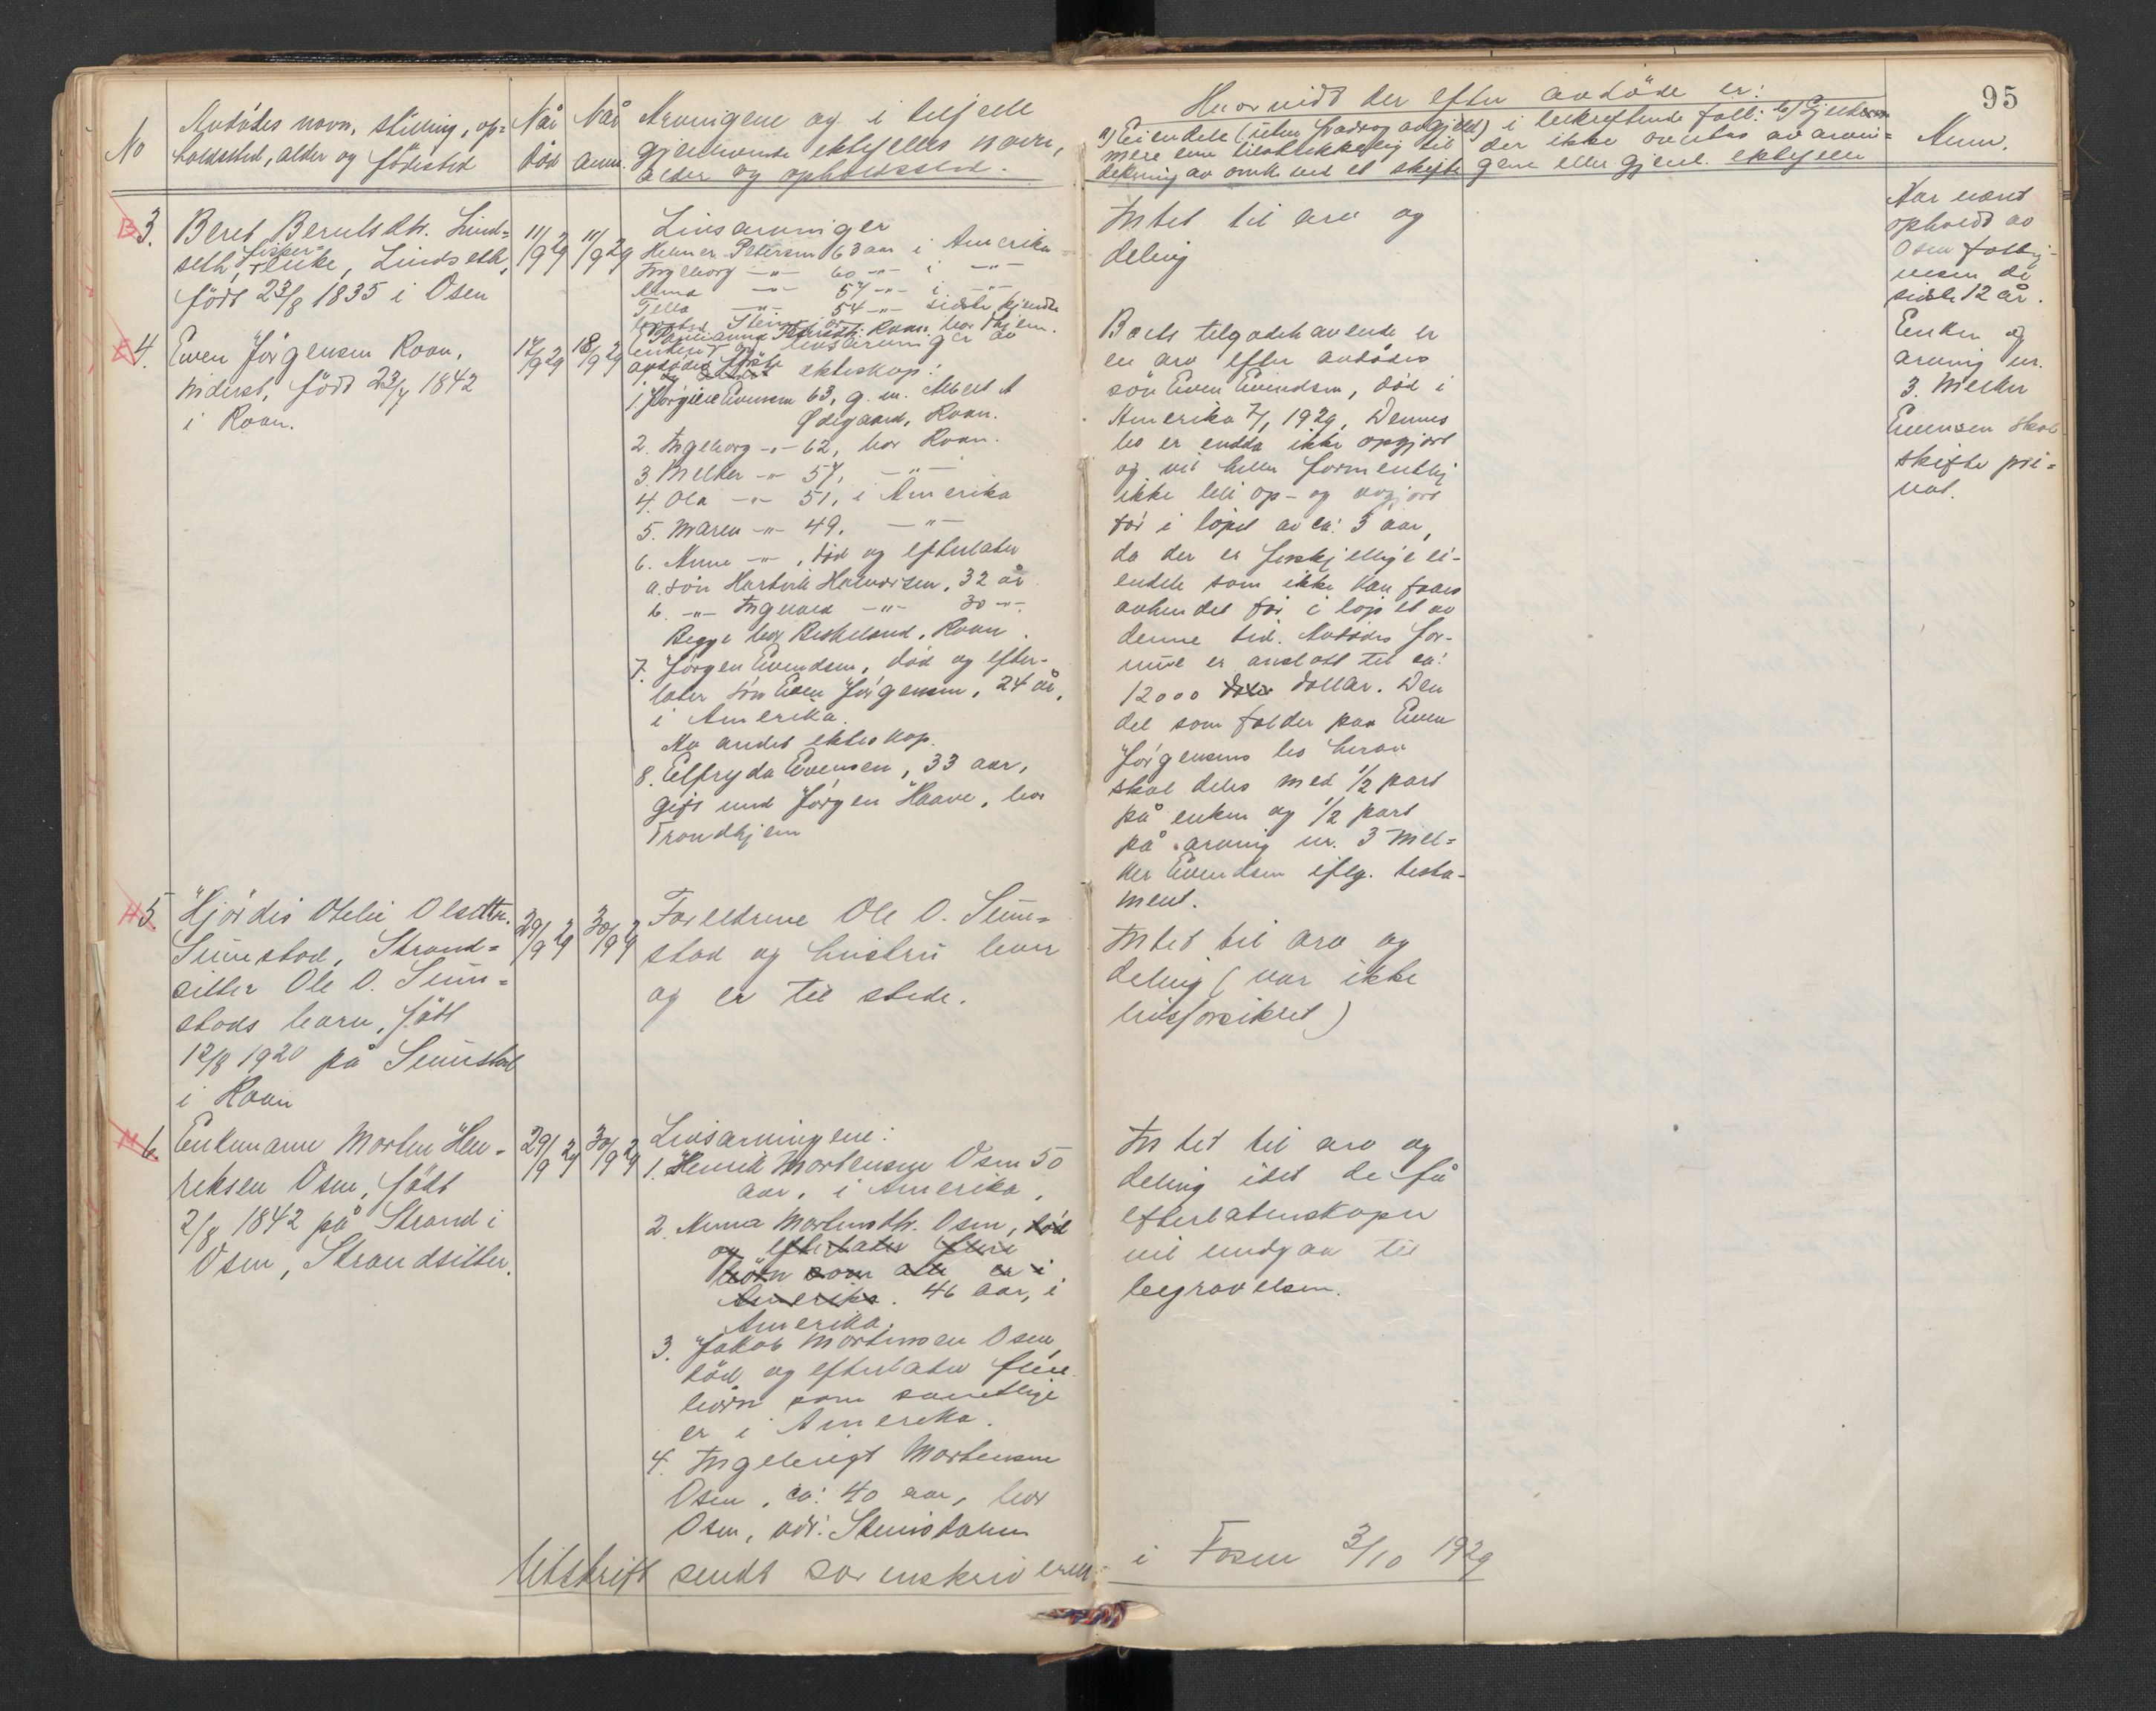 95
No
Avdødes navn, stilling, op-
holdssted, alder og fødested
Når
død
Når
anm.
Arvingene og i tilfelle
gjenlevende ektefelles navn,
alder og opholdssted.
Hvorvidt der efter avdøde er:
a) Eiendele (uten fradrag av gjeld) i bekreftende fall: b) Gjeld som
mere enn tilstrekkelig til der ikke overtas av arvin-
dekning av omk. ved et skifte gene eller gjenl. ektefelle
Anm.
B
3.
Beret Berntsdtr. Lind-
seth, fisker-
enke, Lindseth,
født 23/8 1835 i Osen
11/9 29
11/9 29
Livsarvinger
Helmer Petersen 63 aar i Amerika
Ingeborg -"- 60 -"- i -"-
Anna -"- 57 -"- i -"-
-"- 54 -"- sidste kjendte
Intet til arv og
deling
Har været
opholdt av
Osen fattig-
vesen de
sidste 12 år.
E
4.
Even Jörgensen Roan,
inderst, född 23/7 1842
i Roan.
17/9 29
18/9 29
Roan. hos
enken og livsarvinger av
avdødes første ekteskap:
1. Jörgine Evensen 63, g. m. Albert A
Ødegaard, Roan.
2. Ingeborg -"- 62, bor Roan.
3. Melker -"- 57, -"-
4. Ola -"- 51, i Amerika
5. Maren -"- 49, -"-
6. Anne -"-, död og efterlater
a. sön Hartvik Halvorsen, 32 år
b. -"- Ingvald -"- 30 -"-
Begge bor Beskeland, Roan.
7. Jörgen Evendsen, död og efter-
later sön Even Jörgensen, 24 år,
i Amerika.
Av andet ekteskap.
8. Elfryda Evensen, 33 aar,
gift med Jörgen Haave, bor
Trondhjem
Boets tilgodehavende er
en arv efter avdødes
sön Even Evendsen, död i
Amerika 7/1 1929. Dennes
bo er endda ikke opgjort
og vil heller formentlig
ikke bli op- og avgjort
för i löpet av ca: 5 aar,
da der er forskjellige ei-
endele som ikke kan faaes
avhendet för i löpet av
denne tid. Avdødes for-
mue er anslått til ca:
12000 dollar. Den
del som falder paa Even
Jörgensens bo herav
skal deles med 1/2 part
på enken og 1/2 part
på arving nr. 3 Mel-
ker Evendsen iflg. testa-
ment.
Enken og
arving nr.
3. Melker
Evensen skal
skifte pri-
vat.
H
5.
Hjördis Otelie Olsdtr.
Sumstad, Strand-
sitter Ole O. Sum-
stads barn, född
12/8 1920 på Sumstad
i Roan
29/9 29
30/9 29
Foreldrene Ole O. Sum-
stad og hustru lever
og er til stede.
Intet til arv og
deling (var ikke
livsforsikret)
M
6.
Enkemann Morten Hen-
riksen Osen, född
2/8 1842 på Strand i
Osen, Strandsitter.
29/9 29
30/9 29
Livsarvingene:
1. Henrik Mortensen Osen 50
aar, i Amerika,
2. Anna Mortensdtr. Osen, död
og efterlater flere
börn som alle er i
Amerika. 46 aar, i
Amerika.
3. Jakob Mortensen Osen,
död og efterlater flere
börn som samtlige
er i Amerika.
4. Ingebrigt Mortensen
Osen, ca: 40 aar, bor
Osen, adr: Steinsdalen
Intet til arv og
deling idet de få
efterlatenskaper
vil medgaa til
begravelsen.
Utskrift sendt sorenskriveren i Fosen 3/10 1929